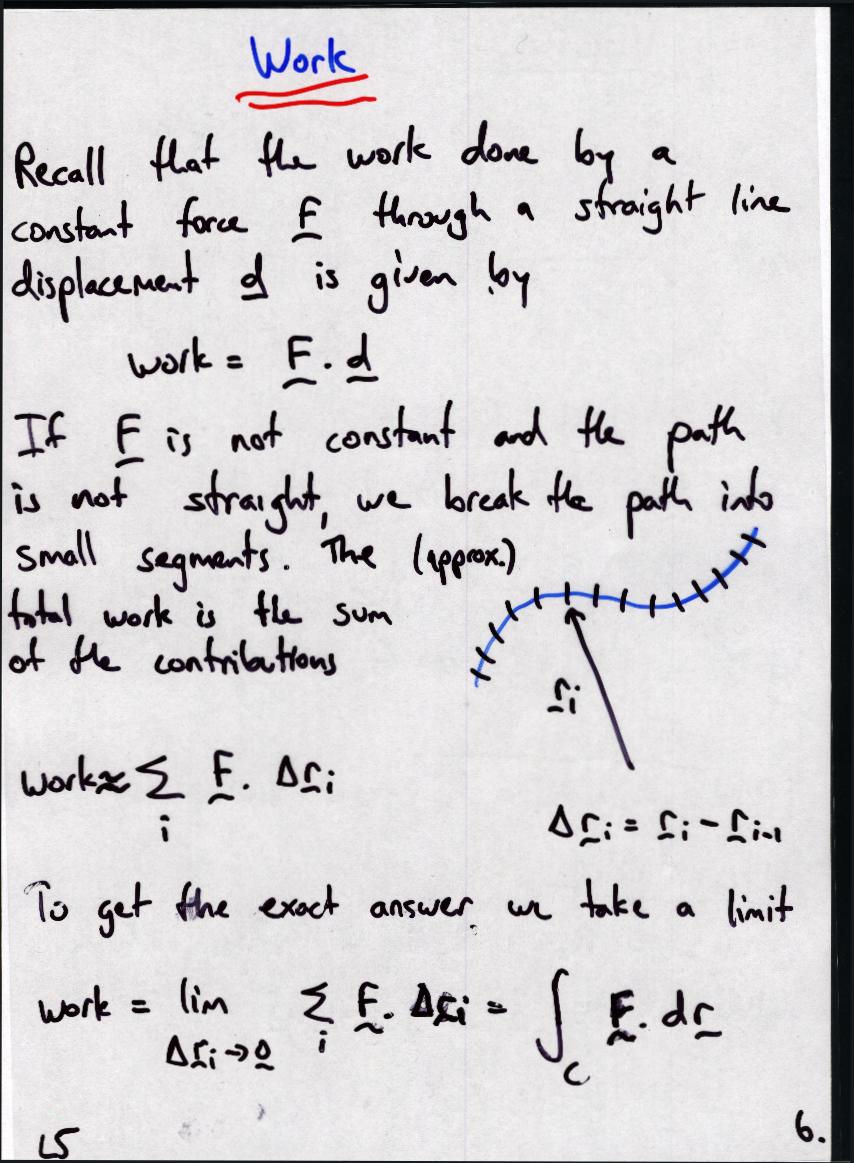 Work
Recall that the work done by a
constant force F̰ through a straight line
displacement d̰ is given by
work = F̰ . d̰
If F̰ is not constant and the path
is not straight, we break the path into
small segments. The (approx.)
total work is the sum
of the contributions
r̰ᵢ
work ≈ Σᵢ F̰ . Δr̰ᵢ
Δr̰ᵢ = r̰ᵢ - r̰ᵢ₋₁
To get the exact answer we take a limit
work = lim Δr̰ᵢ→0̰ Σᵢ F̰ . Δr̰ᵢ = ∫_C F̰ . dr̰
L5
6.